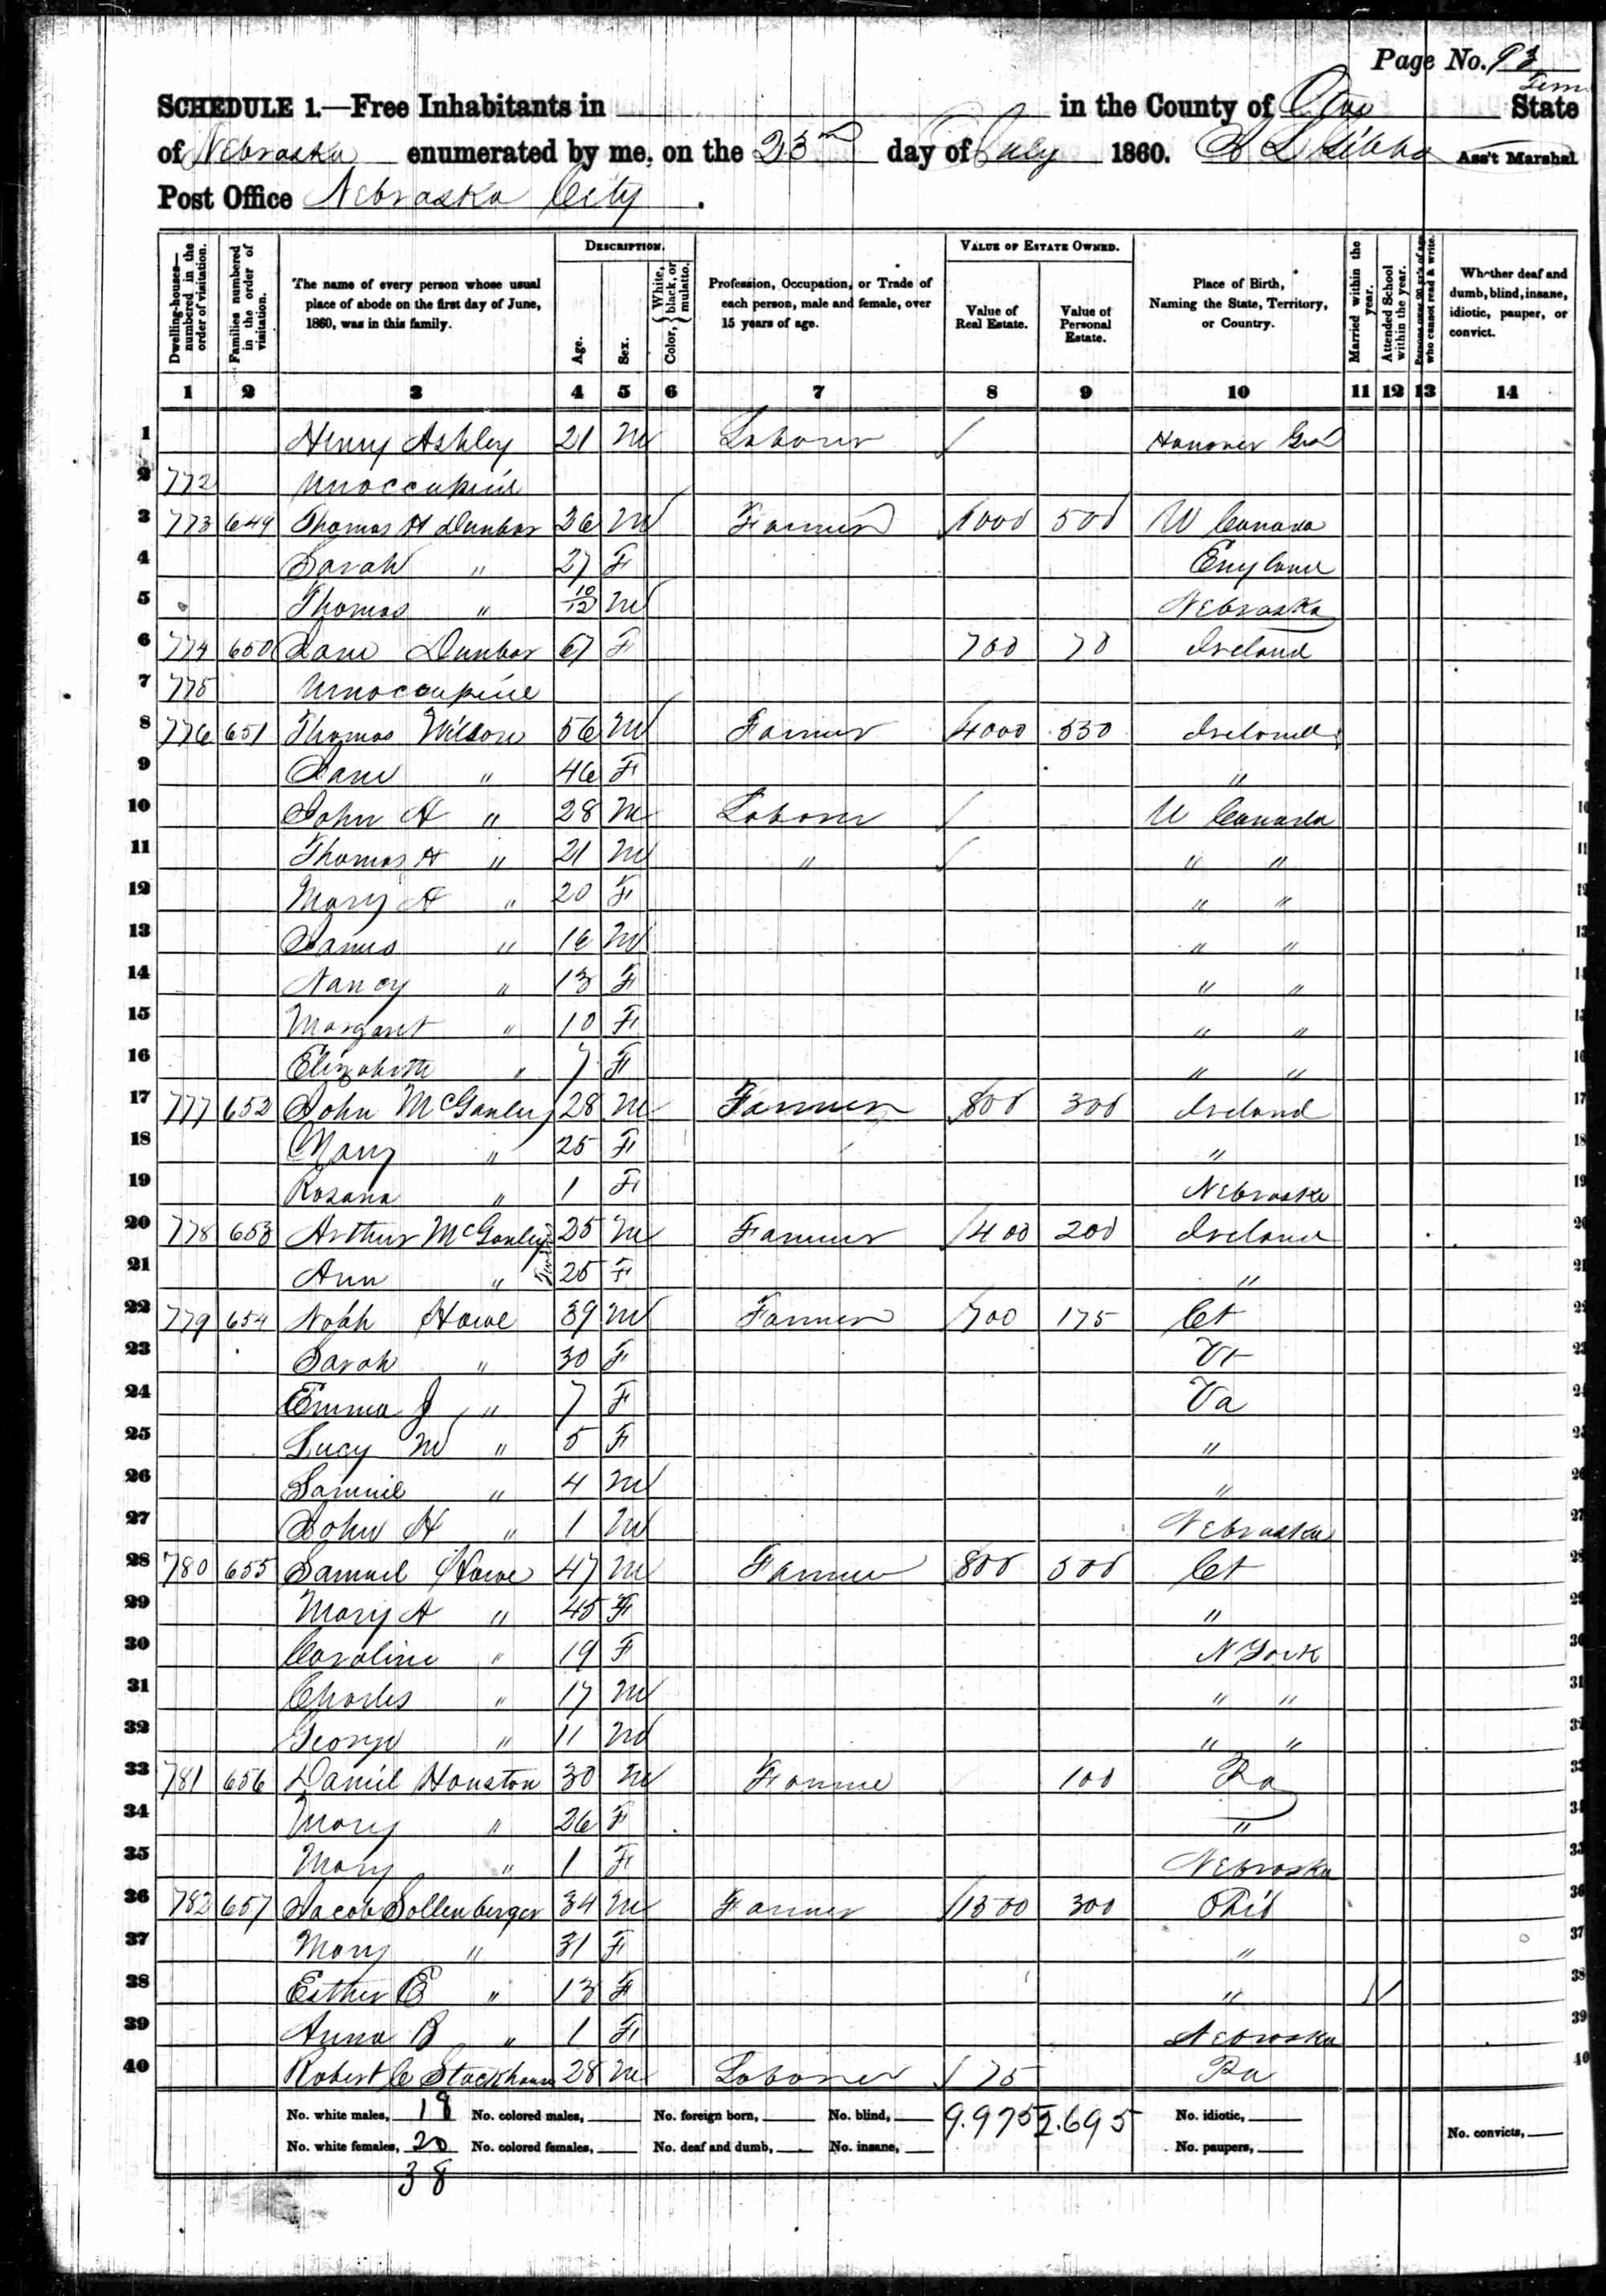 Page No. 93
SCHEDULE 1.—Free Inhabitants in in the County of Otoe State
Term
of Nebraska enumerated by me, on the 23rd day of July 1860. Ass't Marshal
Post Office Nebraska City.
DESCRIPTION. VALUE OF ESTATE OWNED.
Dwelling-houses—numbered in the order of visitation. Families numbered in the order of visitation. The name of every person whose usual place of abode on the first day of June, 1860, was in this family. Age. Sex. Color, { White, black, or mulatto. Profession, Occupation, or Trade of each person, male and female, over 15 years of age. Value of Real Estate. Value of Personal Estate. Place of Birth, Naming the State, Territory, or Country. Married within the year. Attended School within the year. Persons over 20 yr's of age who cannot read & write. Whether deaf and dumb, blind, insane, idiotic, pauper, or convict.
1 2 3 4 5 6 7 8 9 10 11 12 13 14
1 Henry Ashley 21 M Laborer / Hanover 1
2 772 Unoccupied 2
3 773 649 Thomas H Dunbar 26 M Farmer 1000 500 U Canada 3
4 Sarah " 27 F England 4
5 Thomas " 10/12 M Nebraska 5
6 774 650 Jane Dunbar 67 F 700 70 Ireland 6
7 775 Unoccupied 7
8 776 651 Thomas Wilson 56 M Farmer 4000 550 Ireland 8
9 Jane " 46 F " 9
10 John H " 28 M Laborer / U Canada 10
11 Thomas H " 21 M " / " " 11
12 Mary A " 20 F " " 12
13 James " 16 M " " 13
14 Nancy " 13 F " " 14
15 Margaret " 10 F " " 15
16 Elizabeth " 7 F " " 16
17 777 652 John McGanley 28 M Farmer 800 300 Ireland 17
18 Mary " 25 F " 18
19 Rosana " 1 F Nebraska 19
20 778 653 Arthur McGanley 25 M Farmer 1400 200 Ireland 20
21 Ann " 25 F " 21
22 779 654 Noah Howe 39 M Farmer 700 175 Ct 22
23 Sarah " 30 F Vt 23
24 Emma J " 7 F Va 24
25 Lucy M " 5 F " 25
26 Samuel " 4 M " 26
27 John H " 1 M Nebraska 27
28 780 655 Samuel Howe 47 M Farmer 800 500 Ct 28
29 Mary A " 45 F " 29
30 Caroline " 19 F N York 30
31 Charles " 17 M " " 31
32 George " 11 M " " 32
33 781 656 Daniel Houston 30 M Farmer 100 Pa 33
34 Mary " 26 F " 34
35 Mary " 1 F Nebraska 35
36 782 657 Jacob Sollenberger 34 M Farmer 1300 300 Ohio 36
37 Mary " 31 F " 37
38 Esther E " 13 F " / 38
39 Anna B " 1 F Nebraska 39
40 Robert C Stackhouse 28 M Laborer 175 Pa 40
No. white males, 18 No. colored males, No. foreign born, No. blind, 9.975 2.695 No. idiotic,
No. white females, 20 No. colored females, No. deaf and dumb, No. insane, No. paupers, No. convicts,
38